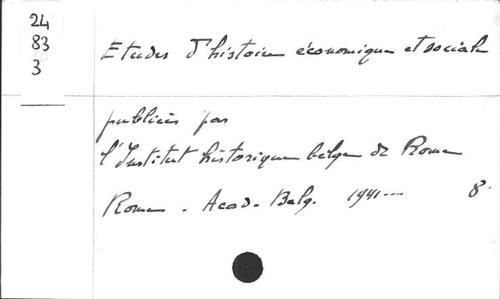 24
83
3
Etudes d'histoire économique et sociale
publiées par
l'Institut historique belge de Rome
Rome. Acad. Belg. 1941... 8°